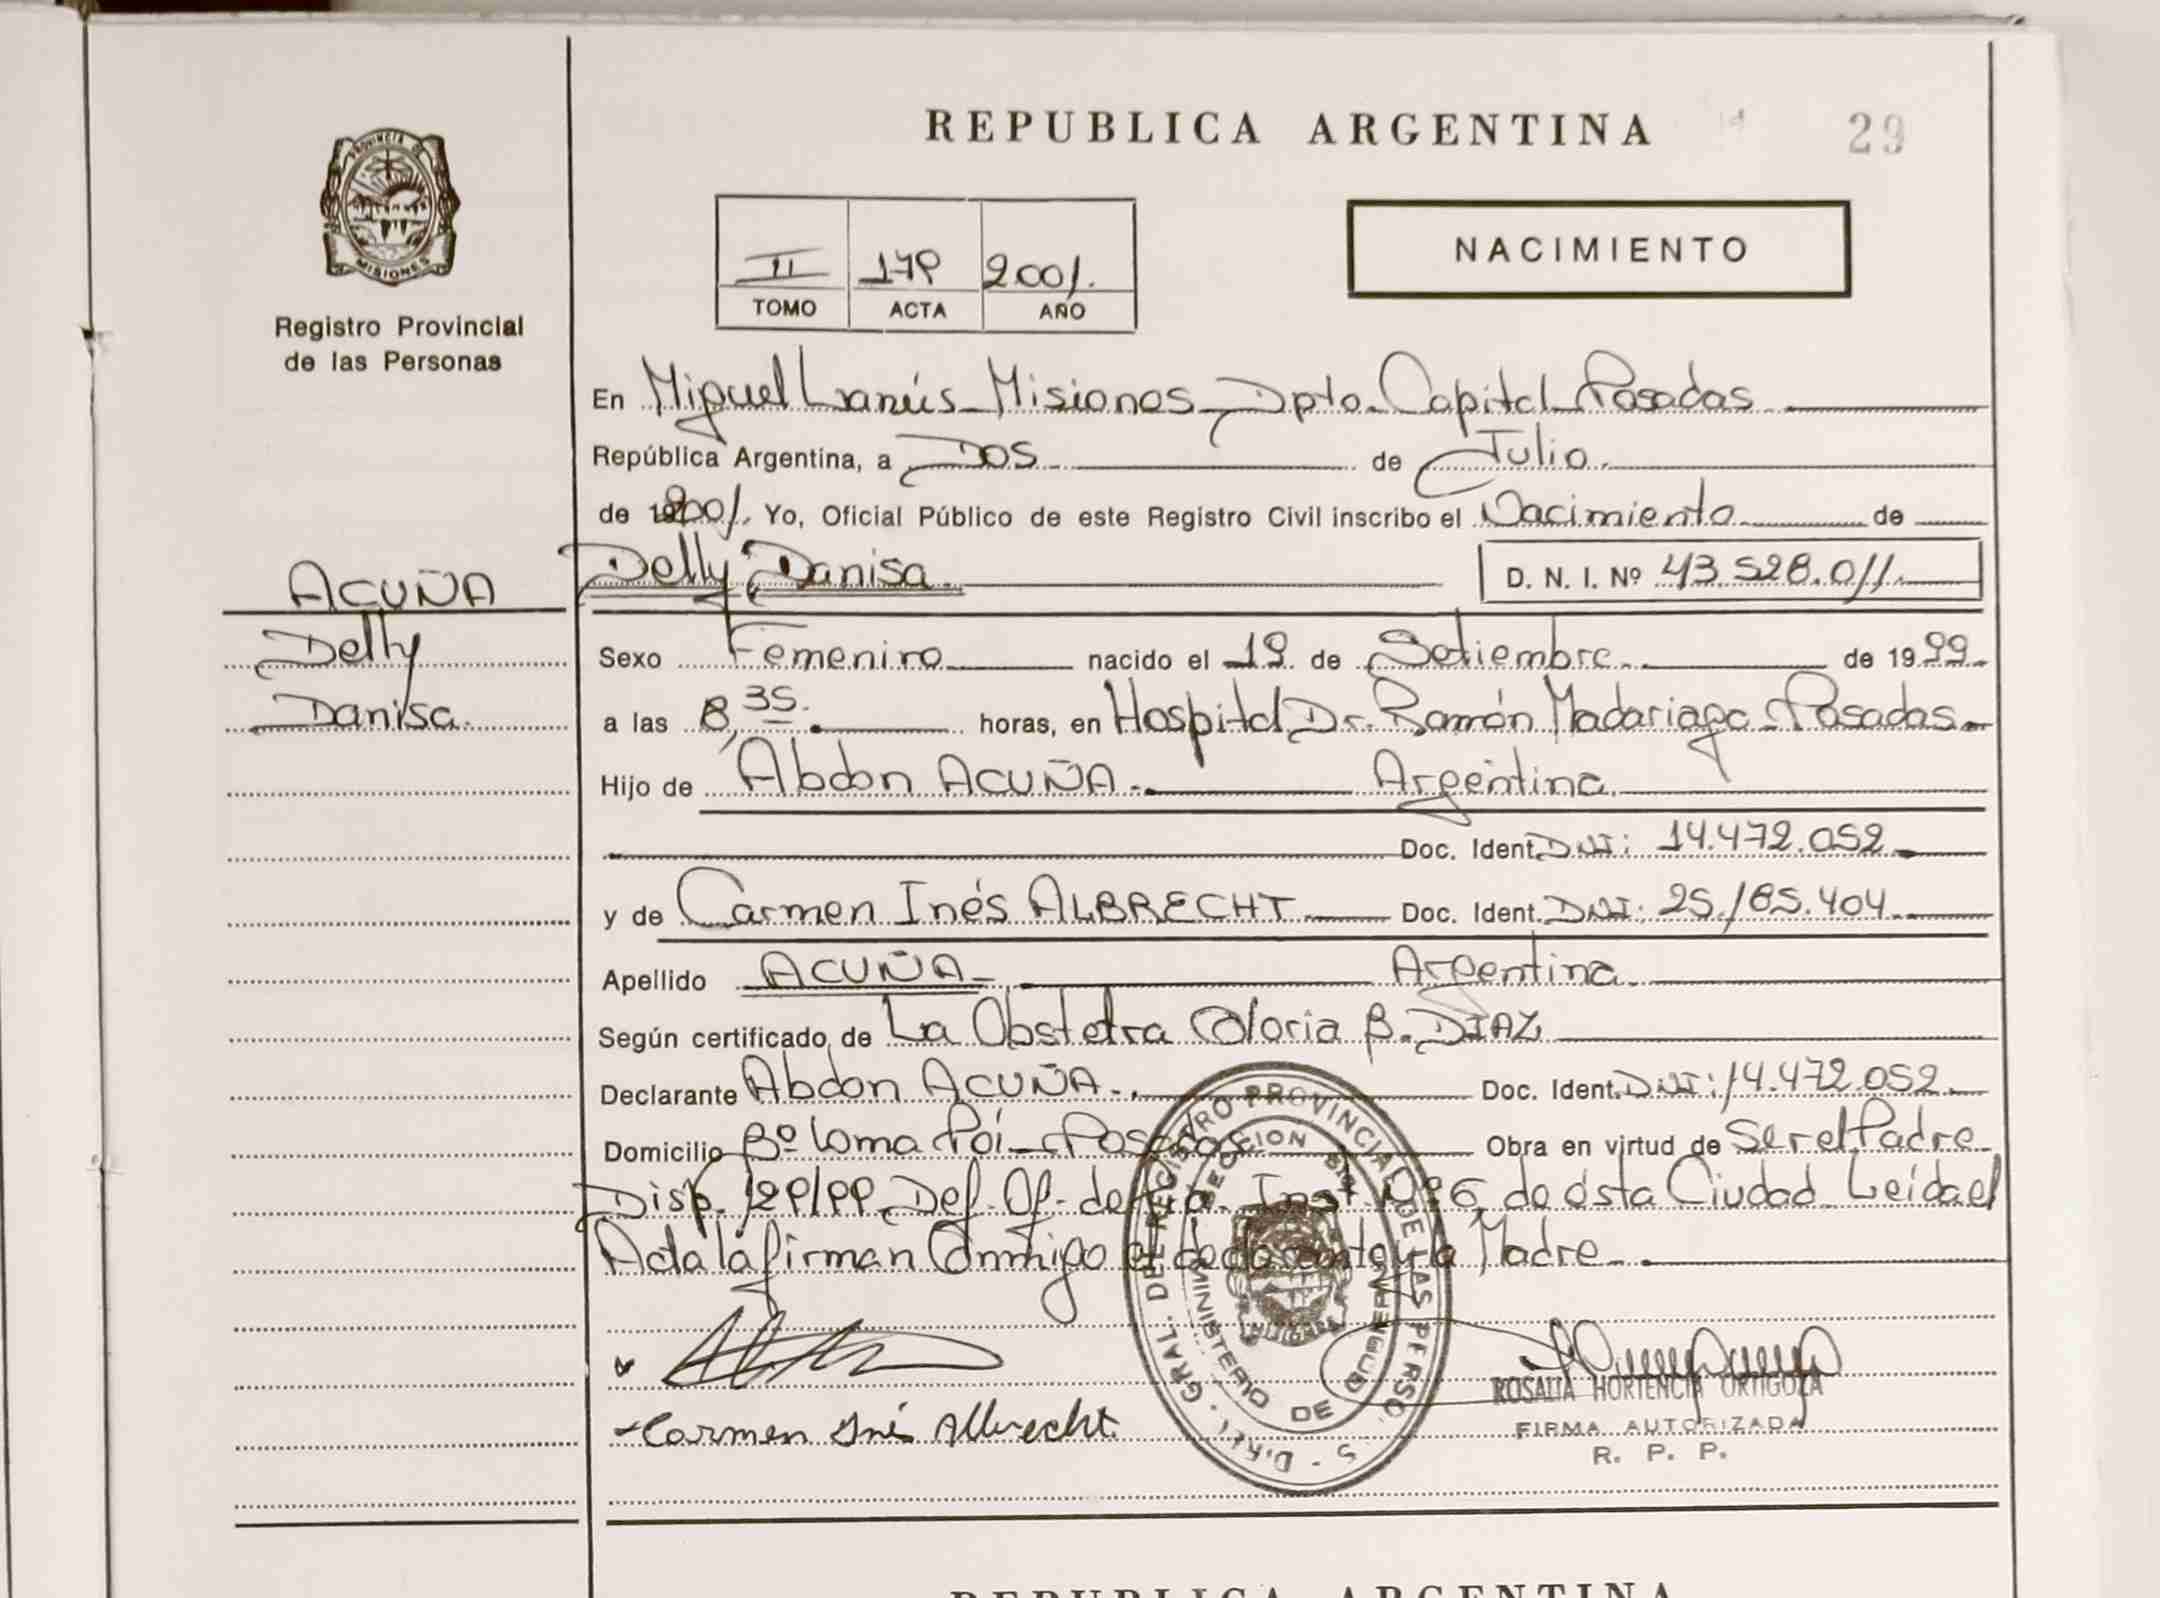 REPUBLICA ARGENTINA
29
PROVINCIA DE
MISIONES
Registro Provincial
de las Personas
II 179 2001.
TOMO ACTA AÑO
NACIMIENTO
En Miguel Lanús - Misiones - Dpto. Capital - Posadas
República Argentina, a Dos de Julio.
de 2001. Yo, Oficial Público de este Registro Civil inscribo el Nacimiento de
ACUÑA
Delly Danisa. D. N. I. Nº 43.528.011.
Delly
Danisa.
Sexo Femenino nacido el 19 de Setiembre. de 1999.
a las 8,35. horas, en Hospital Dr. Ramón Madariaga - Posadas.
Hijo de Abdon ACUÑA. Argentina.
Doc. Ident. DNI: 14.472.052.
y de Carmen Inés ALBRECHT Doc. Ident. DNI: 25.185.404
Apellido ACUÑA - Argentina.
Según certificado de La Obstetra Gloria B. DIAZ
Declarante Abdon ACUÑA. Doc. Ident. DNI: 14.472.052.
Domicilio Bº Loma Poí - Posadas Obra en virtud de Ser el Padre
Disp. 129/99. Def. Of. de Inst. Nº 6 de ésta Ciudad. Leída el
Acta la firman Conmigo el declarante y la Madre.
DIREC. GRAL. DEL REGISTRO PROVINCIAL DE LAS PERSONAS
MINISTERIO DE GOBIERNO
MISIONES
Carmen Inés Albrecht.
ROSALIA HORTENCIA ORTIGOZA
FIRMA AUTORIZADA
R. P. P.
REPUBLICA ARGENTINA